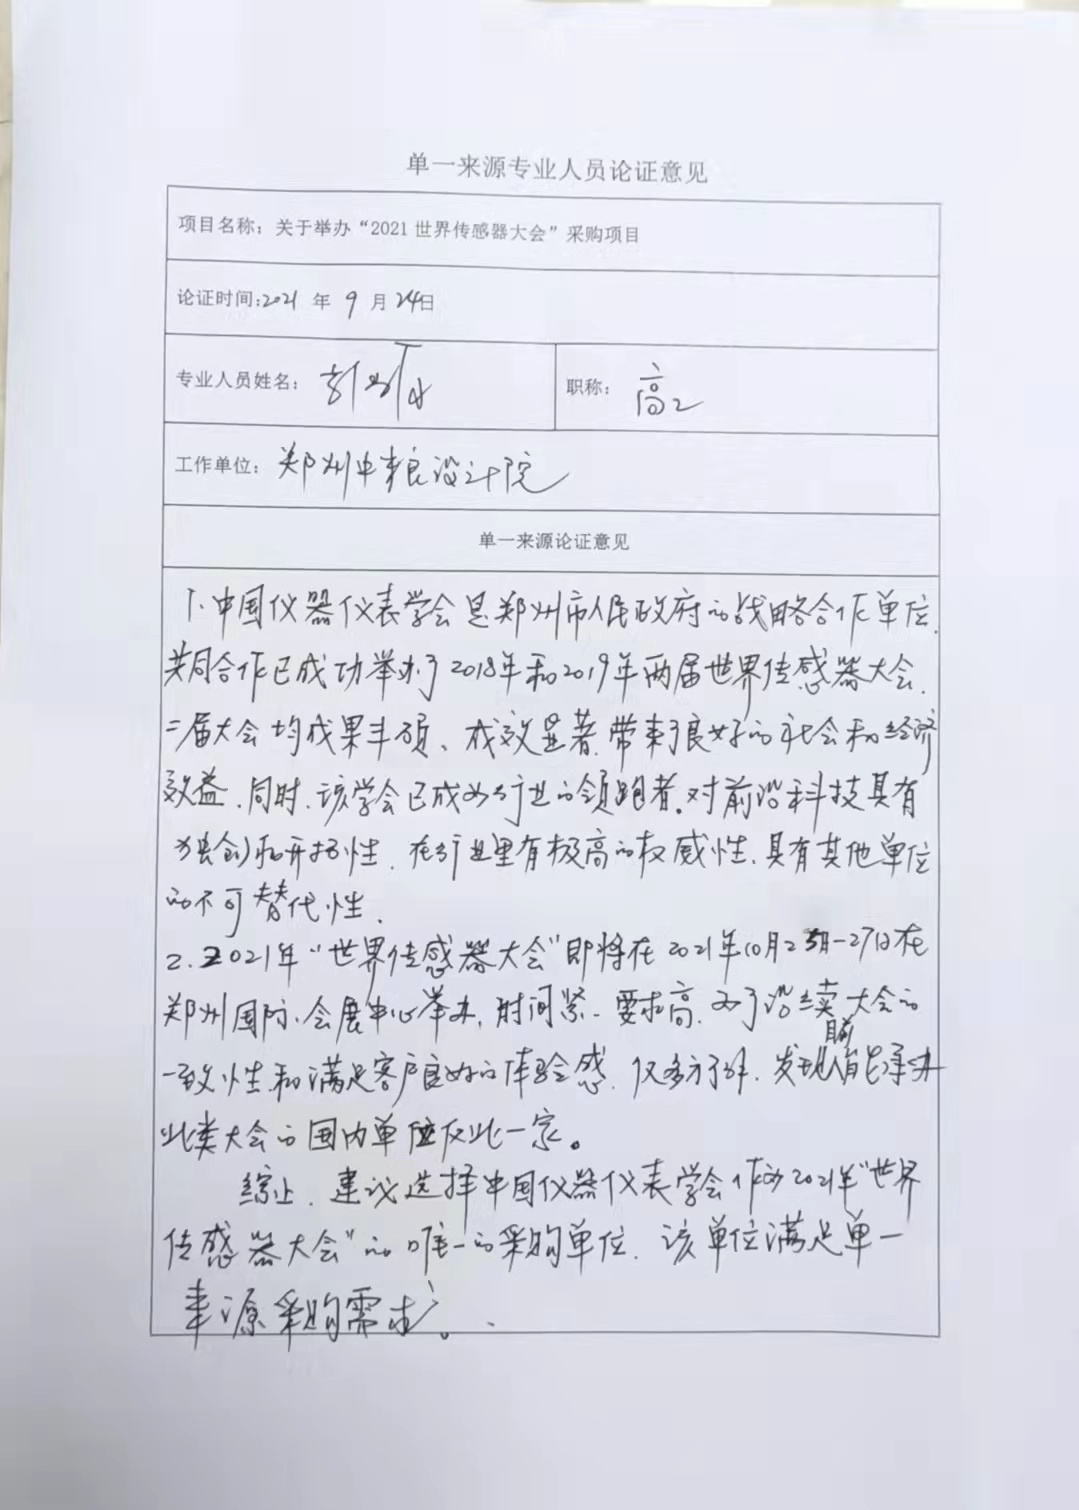 单一来源专业人员论证意见
项目名称：关于举办“2021世界传感器大会”采购项目
论证时间：2021年9月24日
专业人员姓名：
职称：高工
工作单位：郑州中粮设计院
单一来源论证意见
1.中国仪器仪表学会是郑州市人民政府的战略合作单位，
共同合作已成功举办了2018年和2019年两届世界传感器大会，
二届大会均成果丰硕、成效显著，带来了良好的社会和经济
效益，同时，该学会已成为行业的领跑者，对前沿科技具有
独创和开拓性，在行业里有极高的权威性，具有其他单位
的不可替代性，
2.2021年“世界传感器大会”即将在2021年10月25日-27日在
郑州国际会展中心举办，时间紧、要求高，为了沿续大会的
一致性和满足客户良好的体验感，仅多方了解，发现目前能承办
此类大会的国内单位仅此一家。
综上，建议选择中国仪器仪表学会作为2021年“世界
传感器大会”的唯一的采购单位，该单位满足单一
来源采购需求。